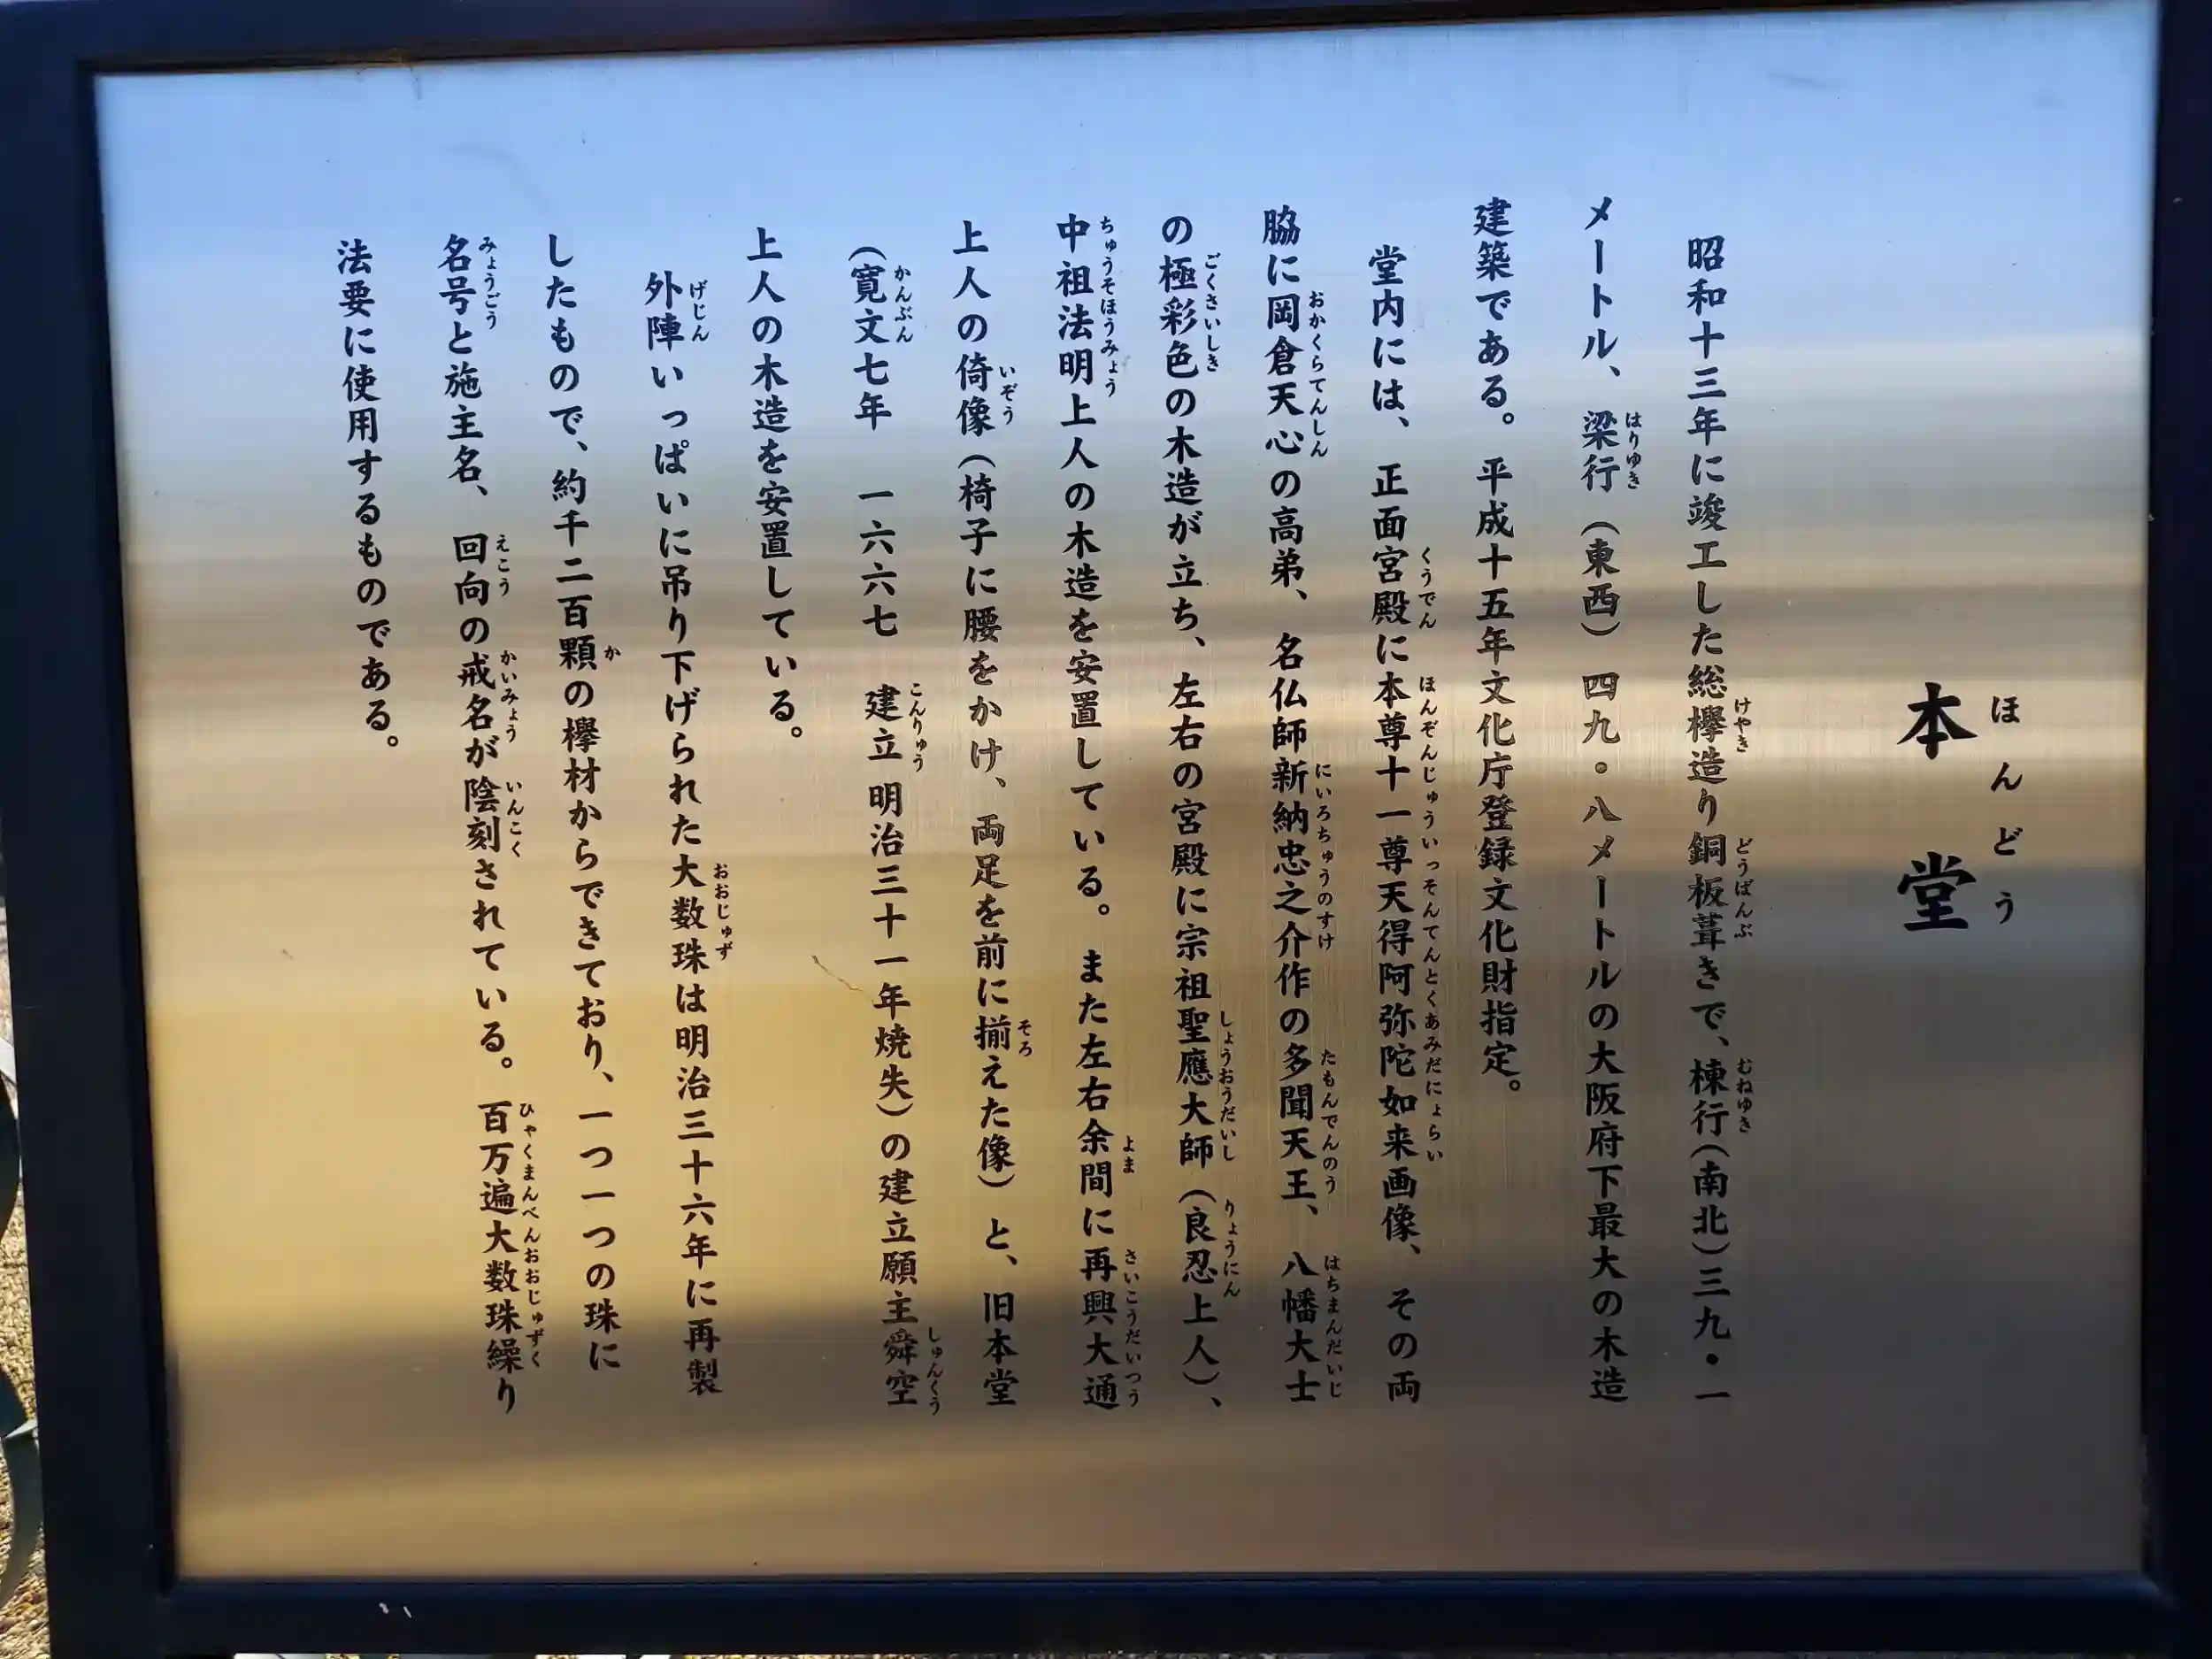 本堂
ほんどう
昭和十三年に竣工した総欅造り銅板葺きで、棟行(南北)三九・一
けやき どうばんぶ むねゆき
メートル、梁行(東西)四九・八メートルの大阪府下最大の木造
はりゆき
建築である。平成十五年文化庁登録文化財指定。
堂内には、正面宮殿に本尊十一尊天得阿弥陀如来画像、その両
くうでん ほんぞんじゅういっそんてんとくあみだにょらい
脇に岡倉天心の高弟、名仏師新納忠之介作の多聞天王、八幡大士
おかくらてんしん にいろちゅうのすけ たもんでんのう はちまんだいじ
の極彩色の木造が立ち、左右の宮殿に宗祖聖應大師(良忍上人)、
ごくさいしき しょうおうだいし りょうにん
中祖法明上人の木造を安置している。また左右余間に再興大通
ちゅうそほうみょう よま さいこうだいつう
上人の倚像(椅子に腰をかけ、両足を前に揃えた像)と、旧本堂
いぞう そろ
(寛文七年 一六六七 建立 明治三十一年焼失)の建立願主舜空
かんぶん こんりゅう しゅんくう
上人の木造を安置している。
外陣いっぱいに吊り下げられた大数珠は明治三十六年に再製
げじん おおじゅず
したもので、約千二百顆の欅材からできており、一つ一つの珠に
か
名号と施主名、回向の戒名が陰刻されている。百万遍大数珠繰り
みょうごう えこう かいみょう いんこく ひゃくまんべんおおじゅずく
法要に使用するものである。